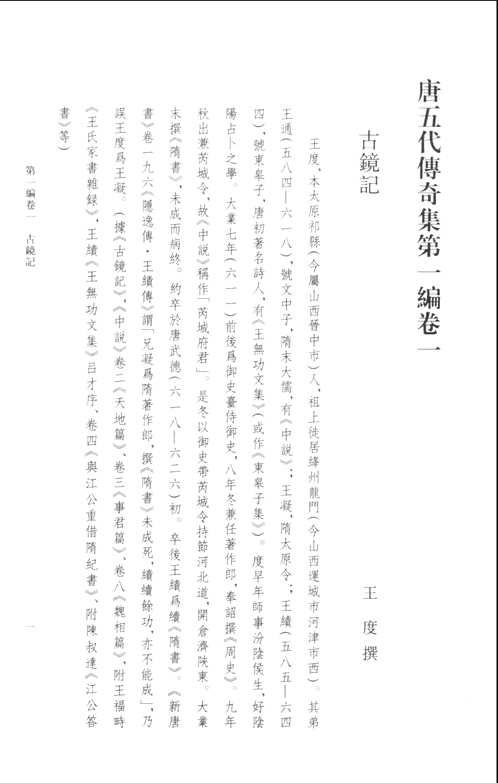 唐五代傳奇集第一編卷一
古鏡記
王度撰
王度，本太原祁縣（今屬山西晉中市）人，祖上徙居絳州龍門（今山西運城市河津市西）。其弟
王通（五八四—六一八），號文中子，隋末大儒，有《中説》；王凝，隋太原令；王績（五八五—六四
四），號東皋子，唐初著名詩人，有《王無功文集》（或作《東皋子集》）。度早年師事汾陰侯生，好陰
陽占卜之學。大業七年（六一一）前後爲御史臺侍御史，八年冬兼任著作郎，奉詔撰《周史》。九年
秋出兼芮城令，故《中説》稱作「芮城府君」。是冬以御史帶芮城令持節河北道，開倉濟陝東。大業
末撰《隋書》，未成而病終。約卒於唐武德（六一八—六二六）初。卒後王績爲續《隋書》。《新唐
書》卷一九六《隱逸傳·王績傳》謂「兄凝爲隋著作郎，撰《隋書》未成死，績續餘功，亦不能成」，乃
誤王度爲王凝。（據《古鏡記》，《中説》卷二《天地篇》、卷三《事君篇》、卷八《魏相篇》，附王福畤
《王氏家書雜録》，王績《王無功文集》呂才序、卷四《與江公重借隋紀書》、附陳叔達《江公答
書》等）
第一編卷一 古鏡記
一